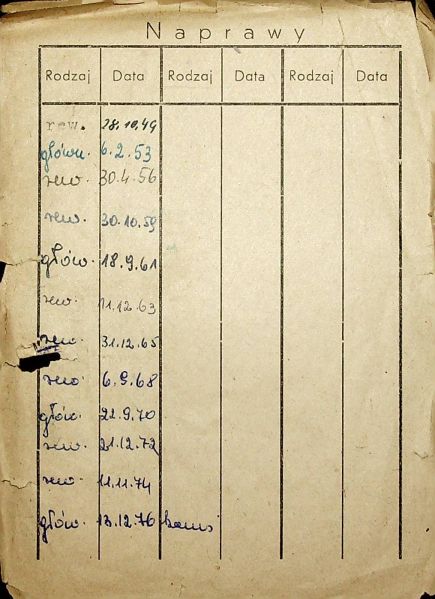 Naprawy
Rodzaj Data Rodzaj Data Rodzaj Data
rew. 28.10.49
główn. 6.2.53
rew 30.4.56
rew. 30.10.59
głów. 18.9.61
rew. 11.12.63
rew. 31.12.65
rew. 6.9.68
głów. 22.9.70
rew. 21.12.72
rew. 11.11.74
głów. 13.12.76